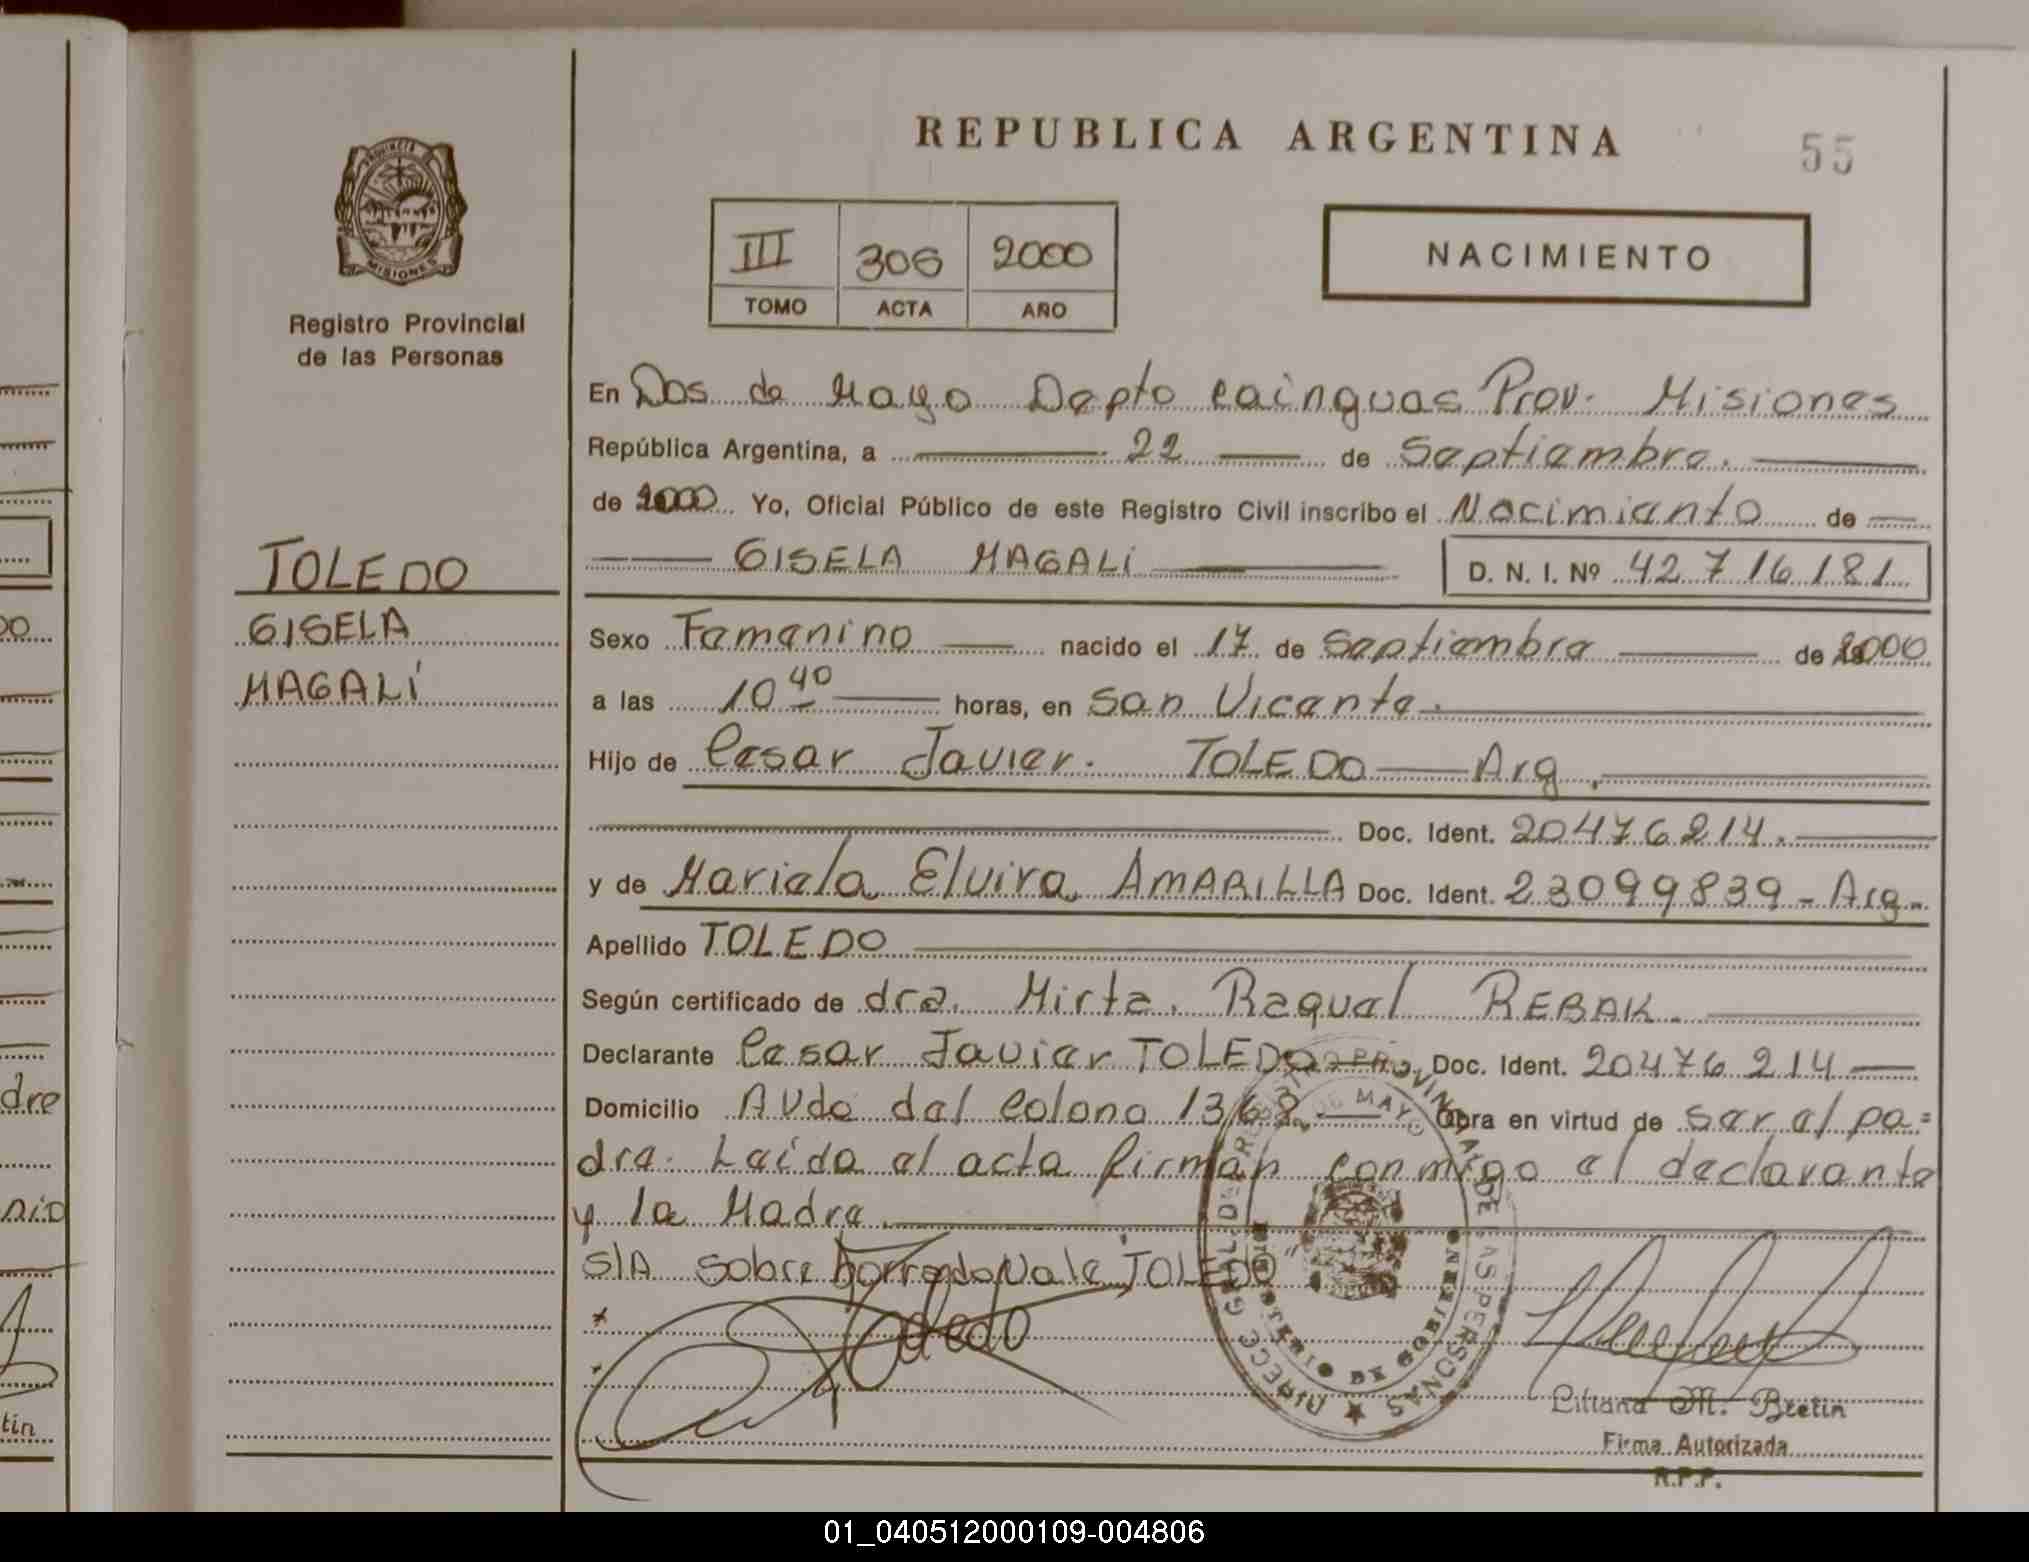 REPUBLICA ARGENTINA
55
PROVINCIA DE
MISIONES
Registro Provincial
de las Personas
III 306 2000
TOMO ACTA AÑO
NACIMIENTO
En Dos de Mayo Depto Cainguas Prov. Misiones
República Argentina, a 22 de Septiembre.
de 2000 Yo, Oficial Público de este Registro Civil inscribo el Nacimiento de
GISELA MAGALI D. N. I. Nº 42716181
TOLEDO
GISELA
MAGALÍ
Sexo Femenino nacido el 17 de Septiembre de 2000
a las 10 40 horas, en San Vicente.
Hijo de Cesar Javier. TOLEDO Arg.
Doc. Ident. 20476214.
y de Mariela Elvira AMARILLA Doc. Ident. 23099839 - Arg.
Apellido TOLEDO
Según certificado de dra. Mirta. Raquel REBAK.
Declarante Cesar Javier TOLEDO Doc. Ident. 20476214
Domicilio AVda del Colono 1368 Obra en virtud de ser el pa=
dre. Leída el acta firman conmigo el declarante
y la Madre.
S/A Sobre borrado Vale "TOLEDO"
Toledo
DIRECC GRAL DEL REGISTRO PROVINCIAL DE LAS PERSONAS
2 DE MAYO
MINISTERIO DE GOBIERNO
Liliana M. Bretin
Firma Autorizada
R.P.P.
dre
nio
tín
01_040512000109-004806